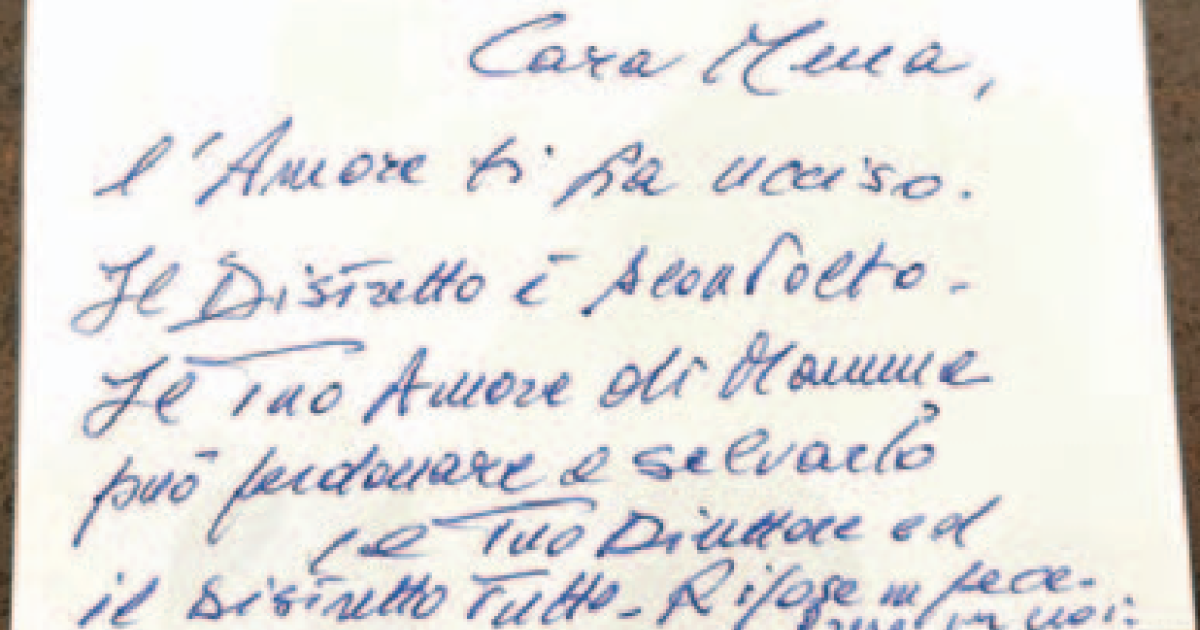 Cara Mena,
l'Amore ti ha ucciso.
Il Distretto è sconvolto -
Il Tuo Amore di Mamma
può perdonare e salvarlo
Il Tuo Direttore ed
il Distretto Tutto - Riposa in pace -
in noi.